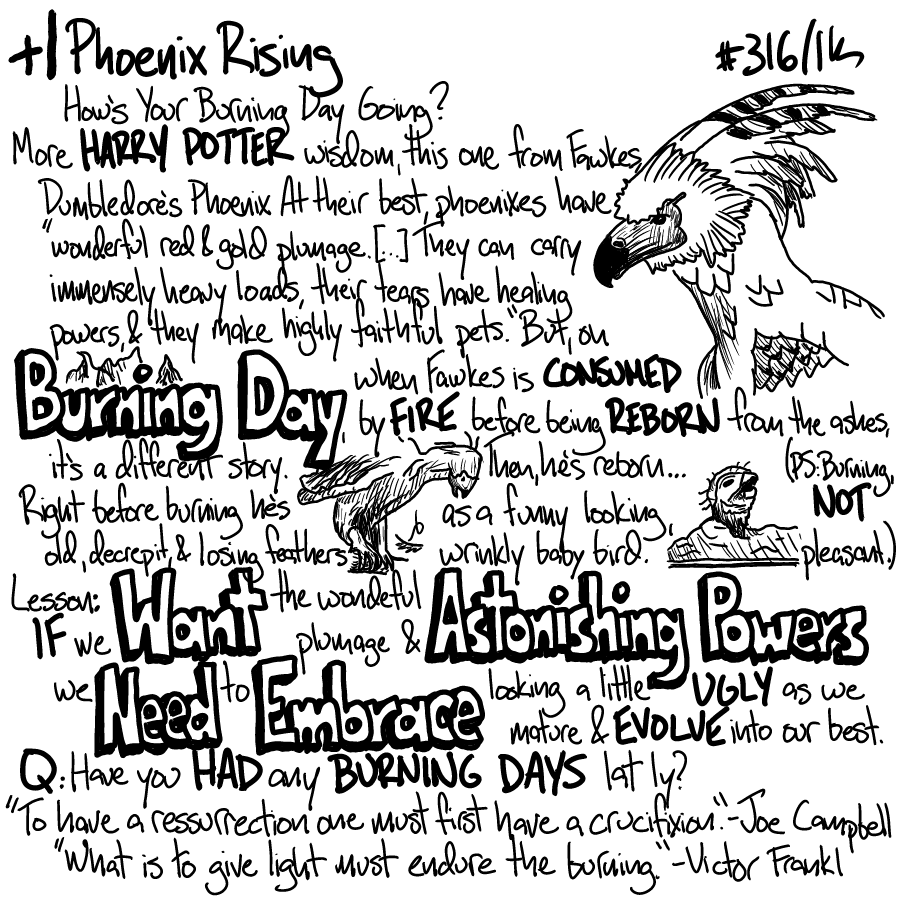 +1 Phoenix Rising #316/1k
How's Your Burning Day Going?
More HARRY POTTER wisdom, this one from Fawkes,
Dumbledore's Phoenix At their best, phoenixes have
"wonderful red & gold plumage. [...] They can carry
immensely heavy loads, their tears have healing
powers, & they make highly faithful pets." But, on
Burning Day, when Fawkes is CONSUMED
by FIRE before being REBORN from the ashes,
it's a different story.
Right before burning he's
old, decrepit, & losing feathers.
Then, he's reborn...
as a funny looking,
wrinkly baby bird.
(PS: Burning,
NOT
pleasant.)
Lesson:
IF we Want the wondeful
plumage & Astonishing Powers
we Need to Embrace looking a little UGLY as we
mature & EVOLVE into our best.
Q: Have you HAD any BURNING DAYS lat ly?
"To have a ressurrection one must first have a crucifixion." -Joe Campbell
"What is to give light must endure the burning." -Victor Frankl